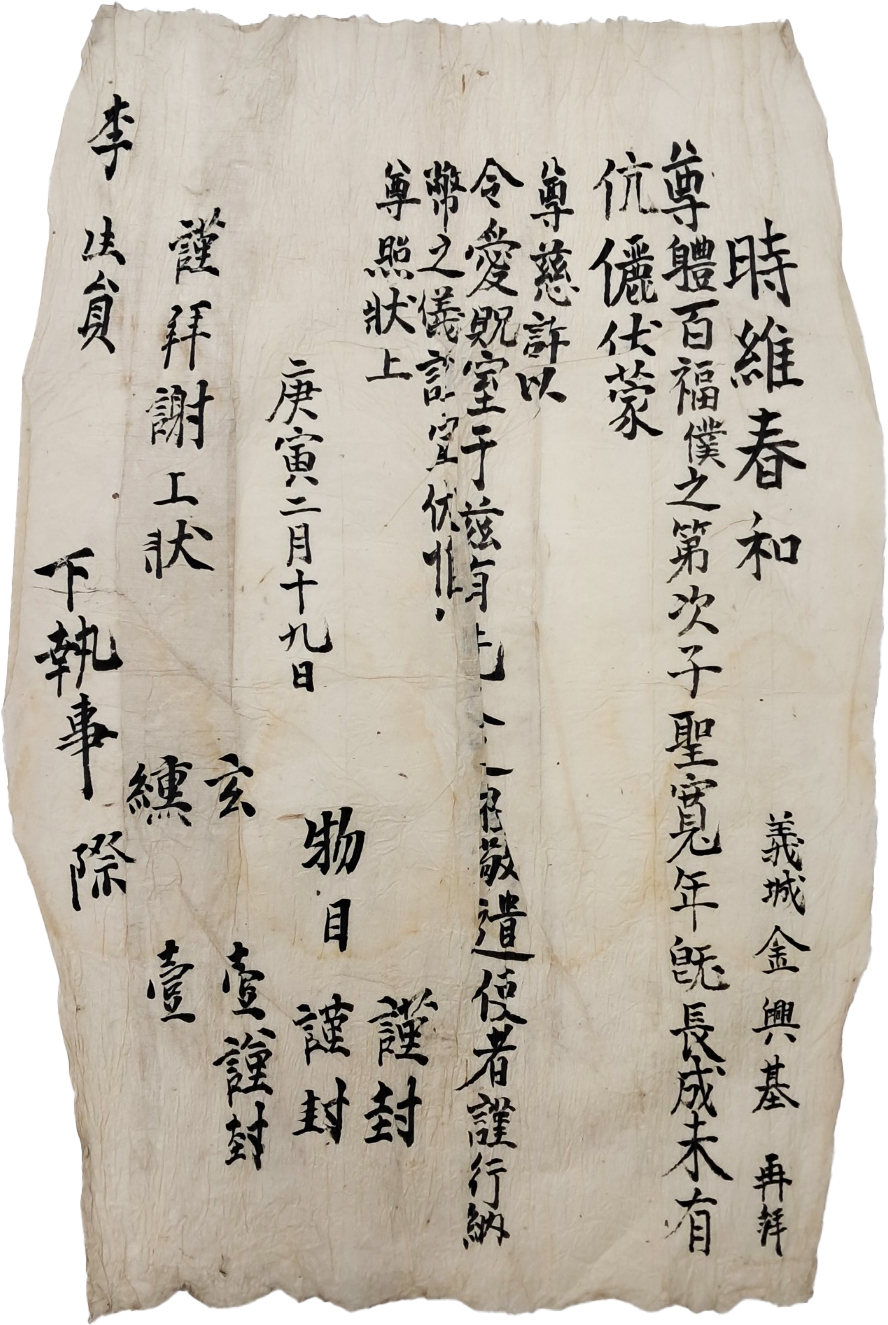 時維春和
義城金興基 再拜
尊體百福僕之第次子聖寬年旣長成未有
伉儷伏蒙
尊慈許以
令愛貺室于茲有先之禮敬遣使者謹行納
幣之儀謹宣伏惟
尊照狀上
謹封
庚寅二月十九日
物目 謹封
玄 壹 謹封
謹拜謝上狀
纁 壹
李生員 下執事 際